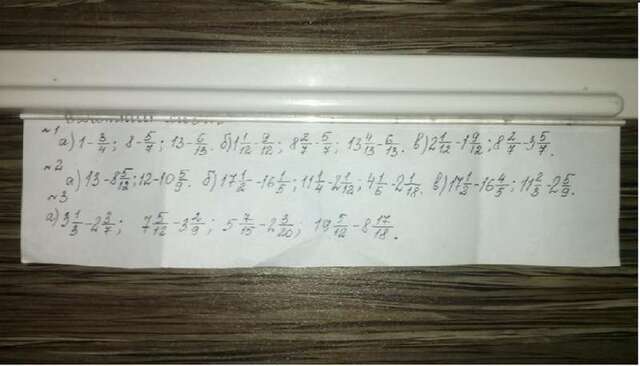 №1
а) 1-3/4; 8-5/7; 13-6/13. б) 1 1/12-9/12; 8 2/7-5/7; 13 4/13-6/13. в) 2 1/12-1 9/12; 8 2/7-3 5/7.
№2
а) 13-8 5/12; 12-10 5/9. б) 17 1/2-16 1/5; 11 1/4-2 1/12; 4 1/6-2 1/18. в) 17 1/2-16 4/5; 11 2/3-2 5/9.
№3
а) 3 1/3-2 2/7; 7 5/12-3 2/9; 5 7/15-2 3/20; 19 5/12-8 17/18.